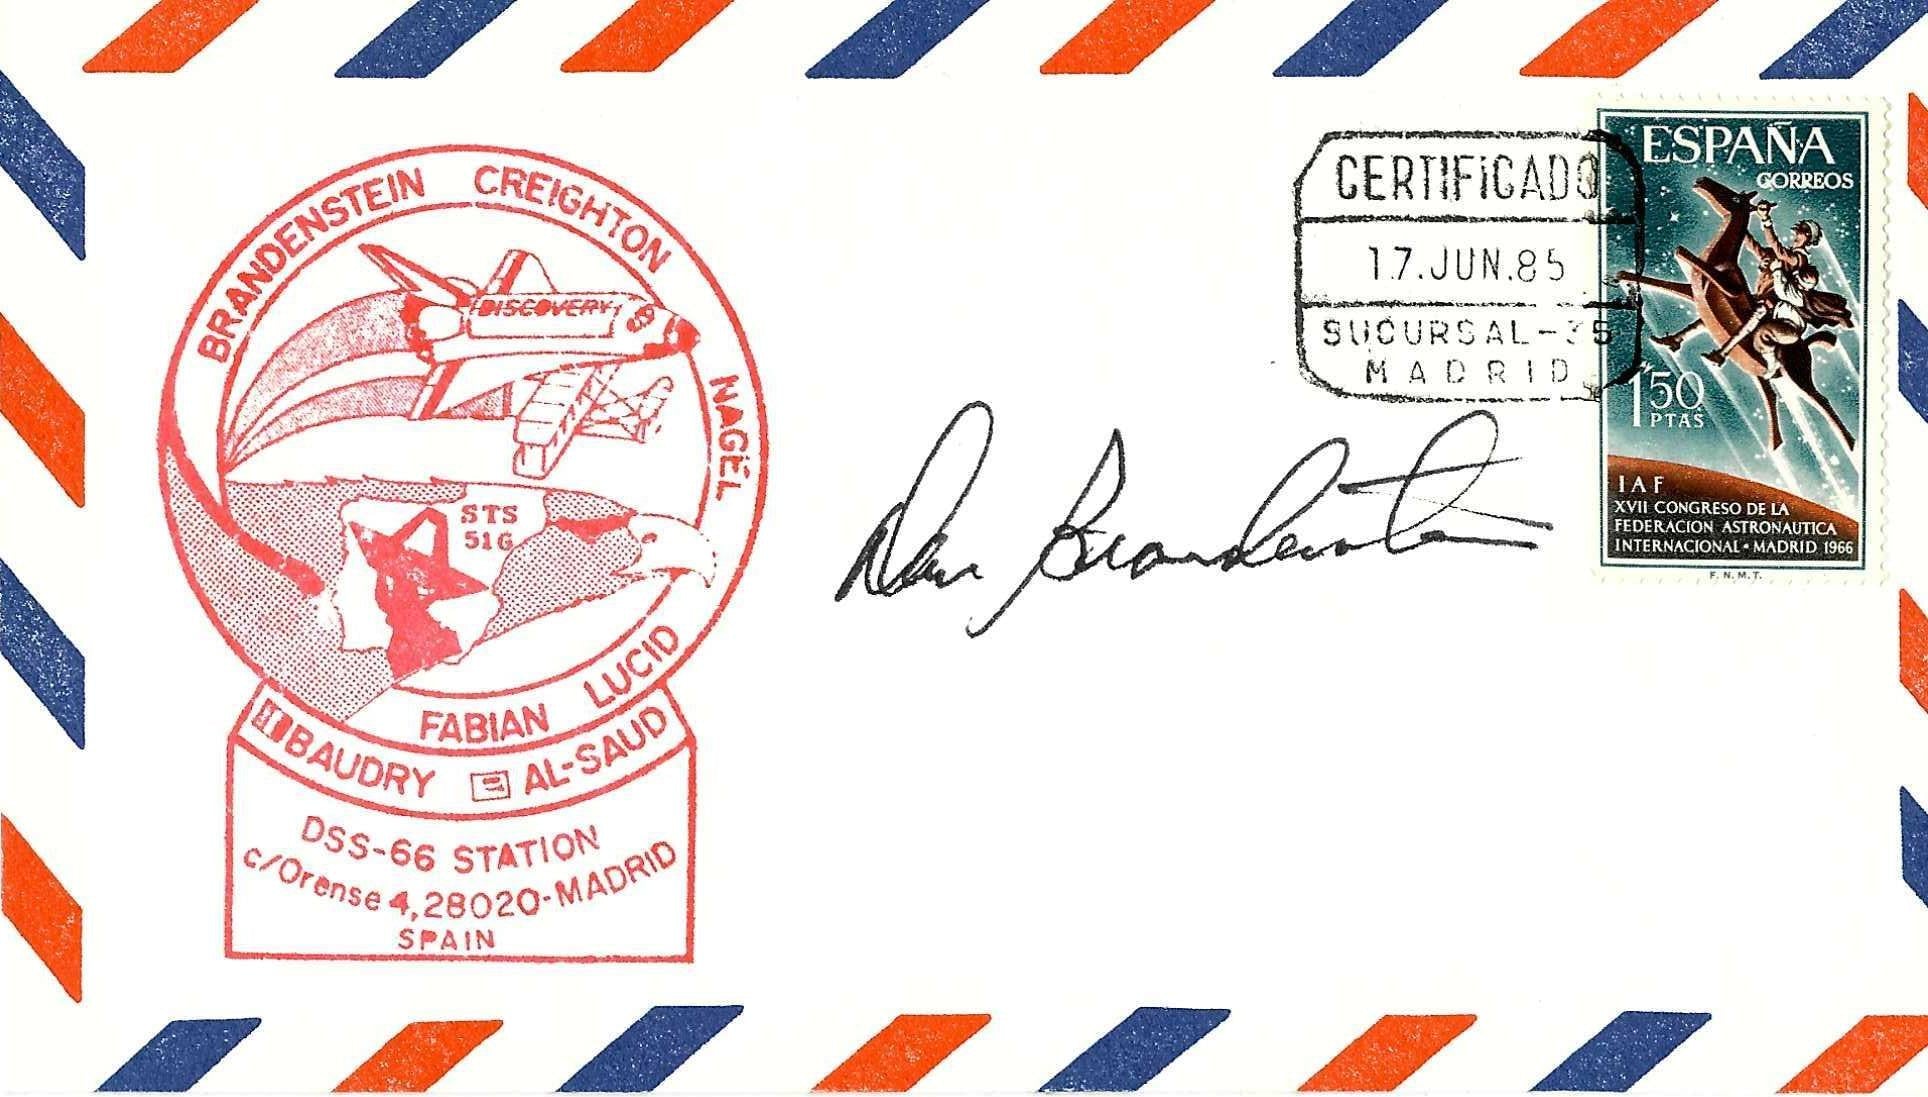 BRANDENSTEIN CREIGHTON NAGEL
DISCOVERY
STS
51G
FABIAN LUCID
BAUDRY AL-SAUD
DSS-66 STATION
c/Orense 4, 28020-MADRID
SPAIN
Dan Brandenstein
CERTIFICADO
17.JUN.85
SUCURSAL-35
MADRID
ESPAÑA
CORREOS
1'50
PTAS
IAF
XVII CONGRESO DE LA
FEDERACION ASTRONAUTICA
INTERNACIONAL • MADRID 1966
F.N.M.T.